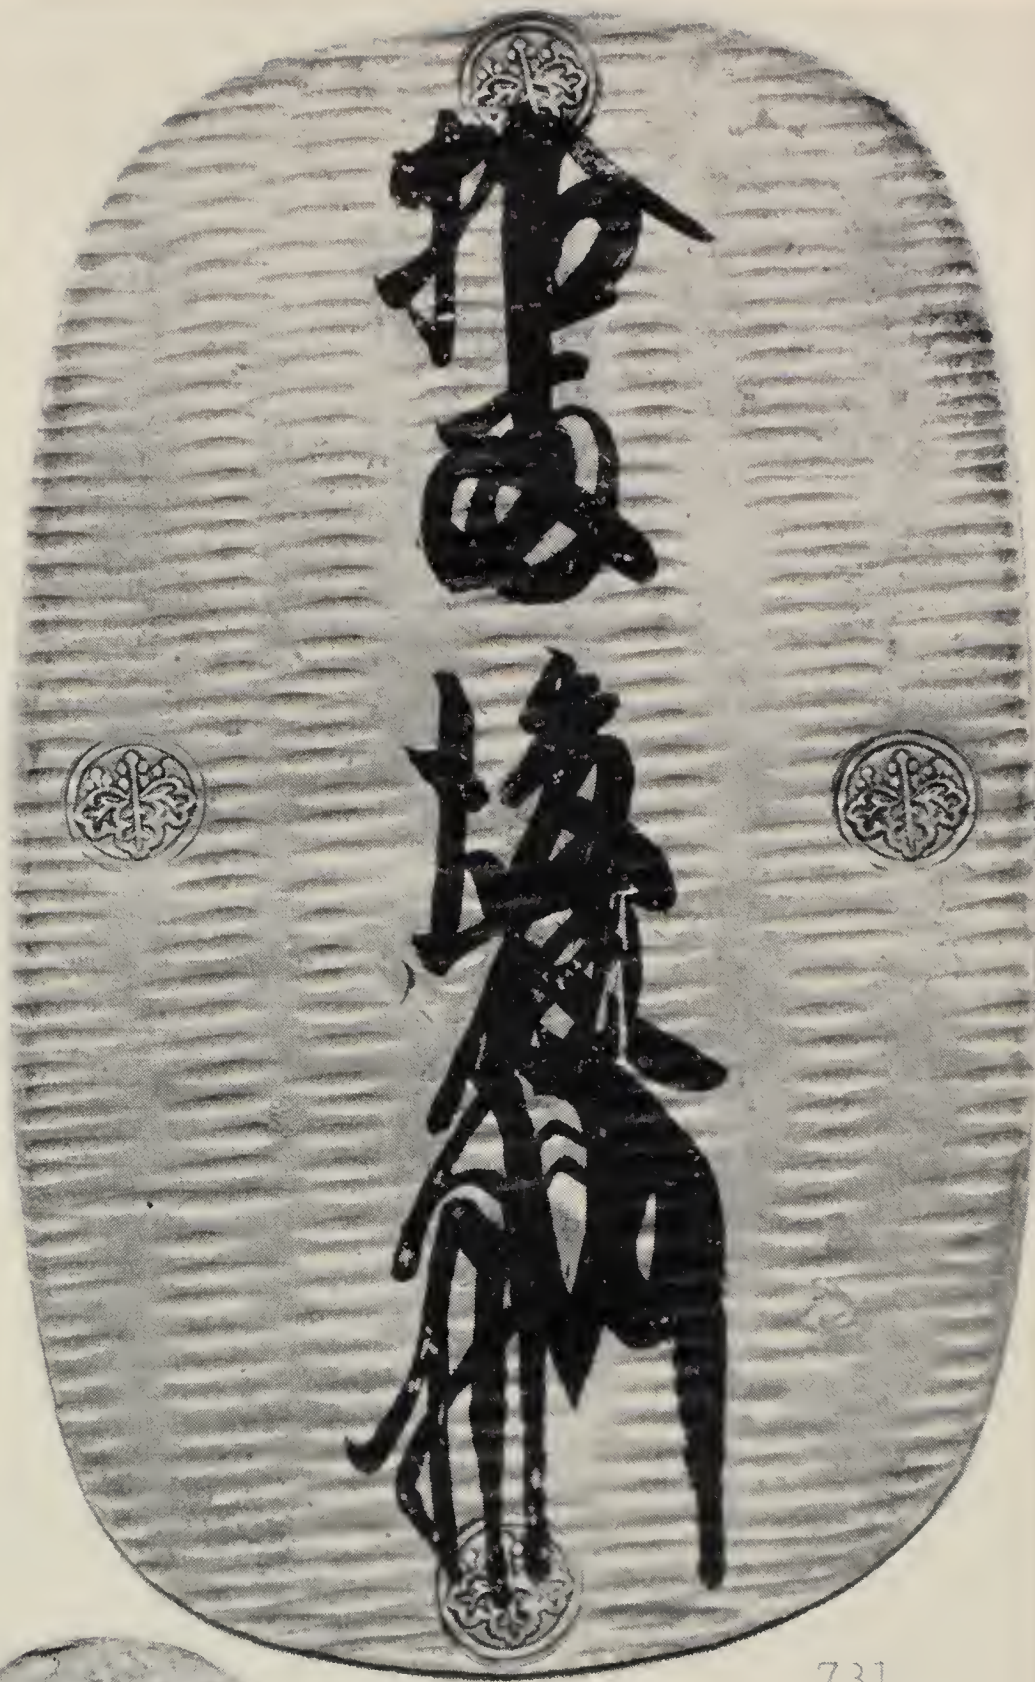 拾両後藤
731